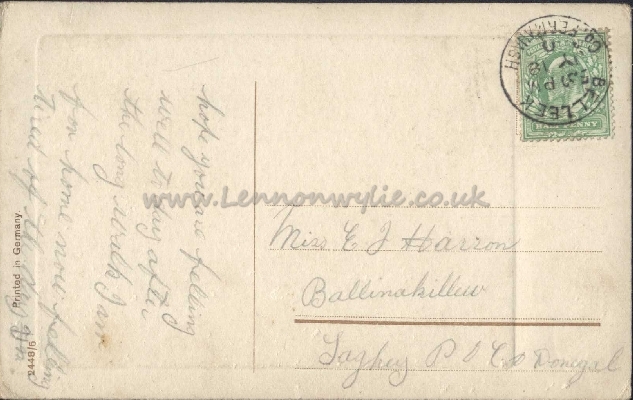 hope you are feeling
well to day after
the long walk I am
from home now feeling
tired of it
www.Lennonwylie.co.uk
Miss E J Harron
Ballinakillew
Laghey P O Co Donegal
BELLEEK
CO. FERMANAGH
HALF PENNY
Printed in Germany.
2448/6